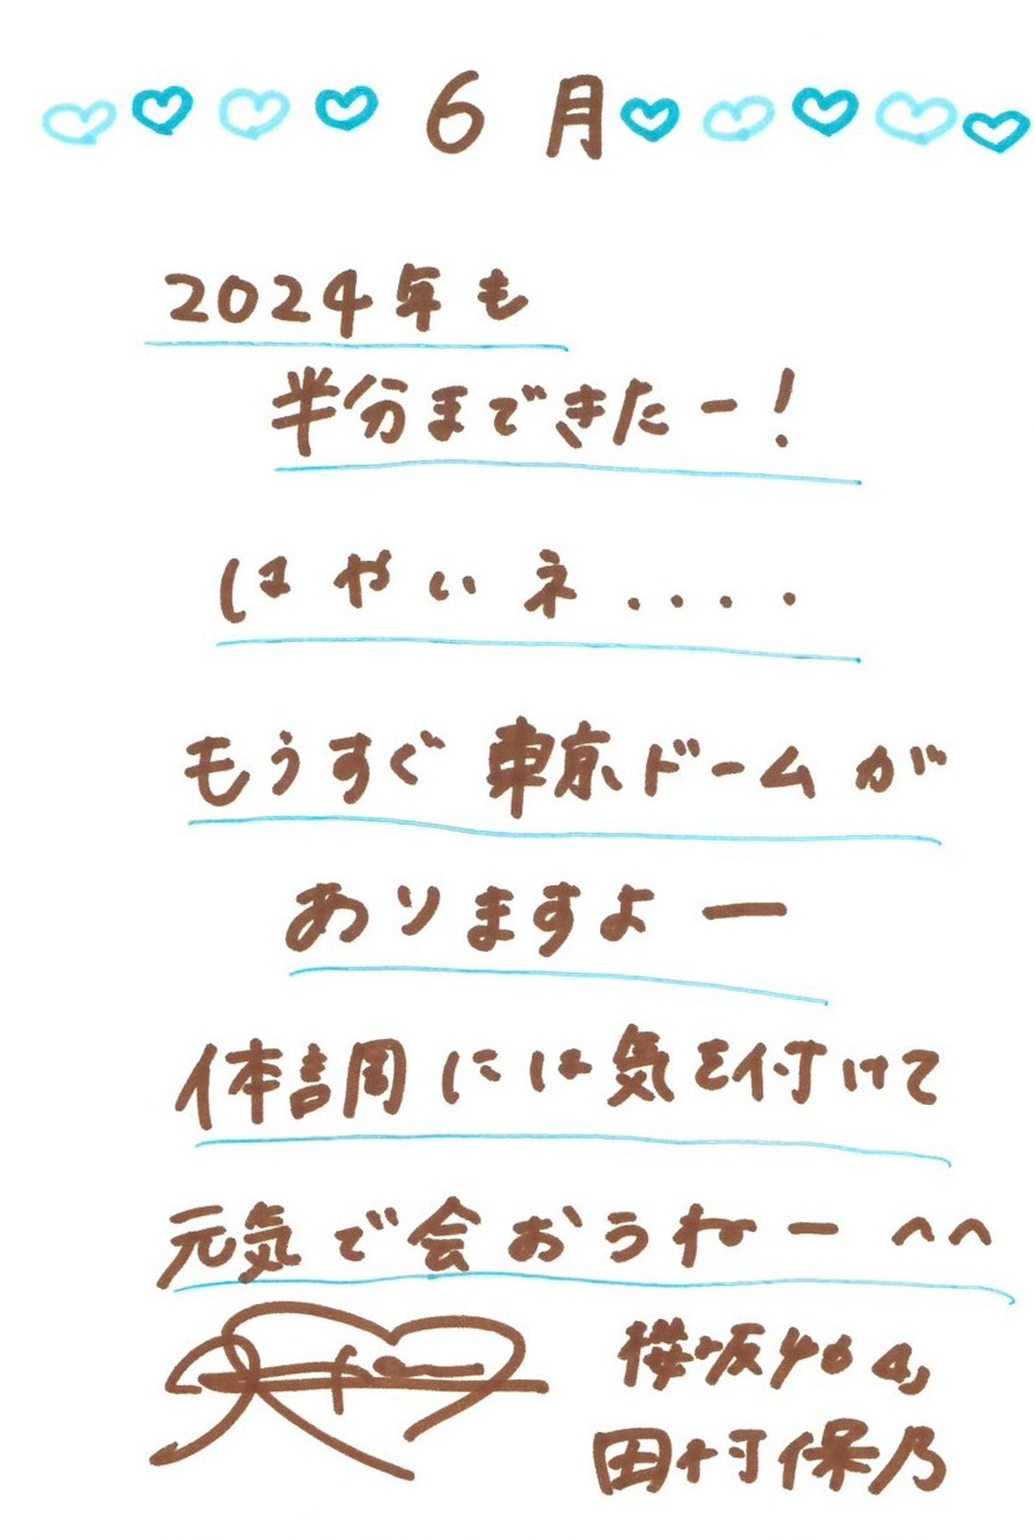 6月
2024年も
半分まできたー!
はやいネ....
もうすぐ東京ドームが
ありますよー
体調には気を付けて
元気で会おうねー^^
櫻坂46
田村保乃